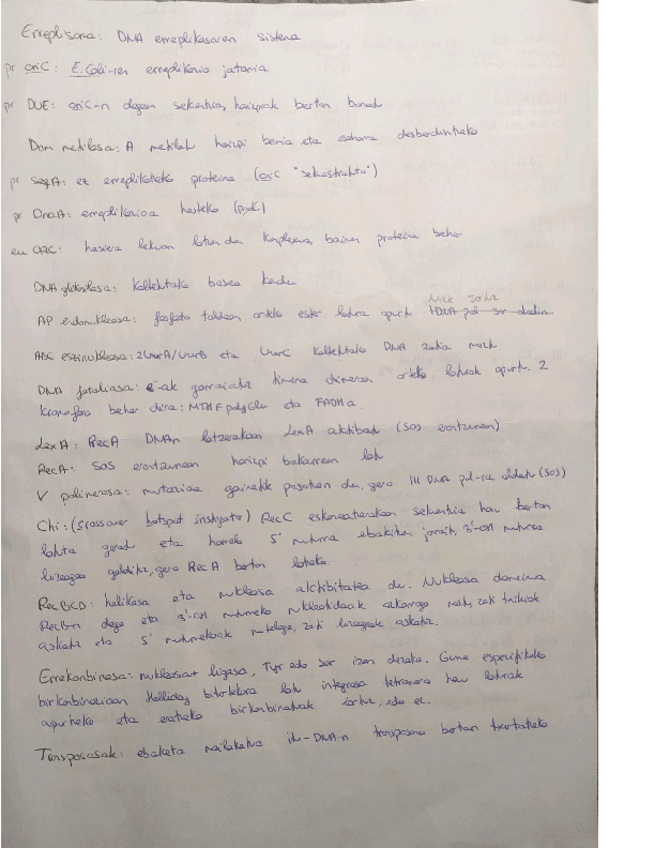 Erreplisoma: DNA erreplikasoren sistema
pr oriC: E.Coli-ren erreplikazio jatorria
pr DUE: oriC-n dagoen sekuentzia, harizpiak bertan banatu
Dam metilasa: A metilatu harizpi berria eta zaharra desberdintzeko
pr SeqA: ez erreplikatzeko proteina (oriC "sekuestratu")
pr DnaA: erreplikazioa hasteko (prok)
eu ORC: hasiera lekuan lotzen den konplexua, bainan proteina behar
DNA glikosilasa: kaltetutako basea kendu
AP endonukleasa: fosfato taldean arteko ester lotura apurtu Nick sortu
ABC eszinukleasa: 2UvrA/UvrB eta UvrC kaltetutako DNA zatia moztu
DNA fotoliasa: e-ak garraiatuz dimera arteko loturak apurtu. 2
kromoforo behar dira: MTHF polyGlu eta FADH
LexA: RecA DNAn lotzerakoan LexA aktibatu (SOS erantzunean)
RecA: SOS erantzunean harizpi bakarrean lotu
V polimerasa: mutazioa gainetik pasatzen du, gero III DNA pol-ra aldatu (SOS)
Chi: (crossover hotspot instigator) RecC eskaneatzerakoan sekuentzia hau bertan
lotuta geratu eta horrela 5' muturra ebakitzen jarraitu, 3'-OH muturra
luzeagoa geldituz, gero RecA bertan lotzeko
RecBCD: helikasa eta nukleasa aktibitatea du. Nukleasa domeinua
RecB-n dago eta 3'-OH muturreko nukleotidoak azkarrago moztu, zati txikiak
askatuz eta 5' muturrekoak motelago, zati luzeagoak askatuz.
Errekonbinasa: nukleasa+ ligasa, Tyr edo Ser izan dezake. Gune espezifikoko
birkonbinazioan Holliday bitartekora lotu integrasa tetramero hau loturak
apurtzeko eta eratzeko birkonbinatuak lortuz, edo ez.
Transposasak: ebaketa mailakatua itu-DNA-n transposoia bertan txertatzeko